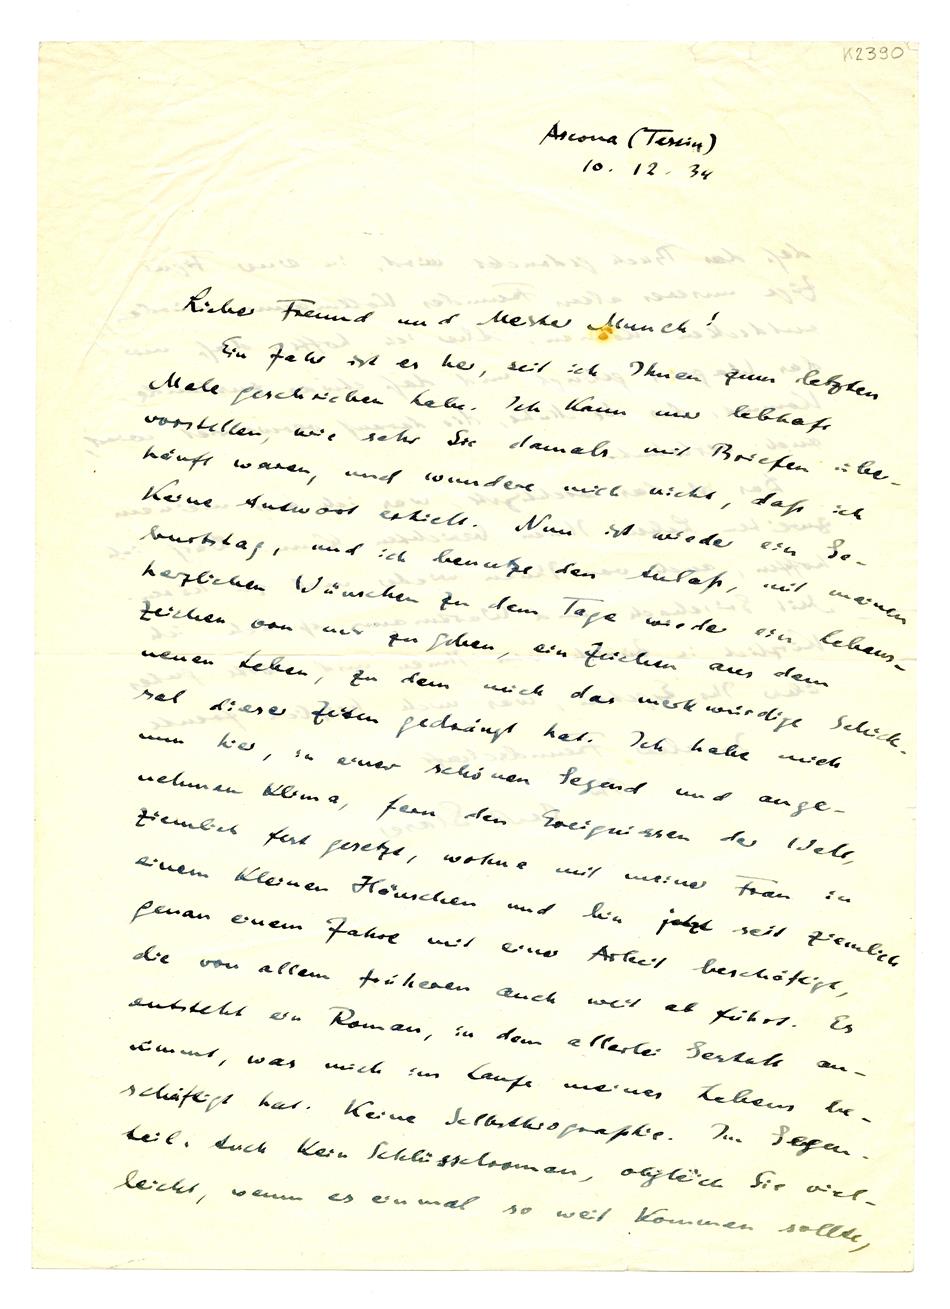 K2390
Ascona (Tessin)
10. 12. 34
Lieber Freund und Meister Munch!
Ein Jahr ist es her, seit ich Ihnen zum letzten
Male geschrieben habe. Ich kann mir lebhaft
vorstellen, wie sehr Sie damals mit Briefen über-
häuft waren, und wundere mich nicht, daß ich
keine Antwort erhielt. Nun ist wieder ein Ge-
burtstag, und ich benutze den Anlaß, mit meinen
herzlichen Wünschen zu dem Tage wieder ein Lebens-
zeichen von mir zu geben, ein Zeichen aus dem
neuen Leben, zu dem mich das merkwürdige Schick-
sal dieser Zeiten gedrängt hat. Ich habe mich
nun hier, in einer schönen Gegend und ange-
nehmen Klima, fern den Ereignissen der Welt,
ziemlich fest gesetzt, wohne mit meiner Frau in
einem kleinen Häuschen und bin jetzt seit ziemlich
genau einem Jahre mit einer Arbeit beschäftigt,
die von allem früheren auch weit ab führt. Es
entsteht ein Roman, in dem allerlei Gestalt an-
nimmt, was mich im Laufe meines Lebens be-
schäftigt hat. Keine Selbstbiographie. Im Gegen-
teil. Auch kein Schlüsselroman, obgleich Sie viel-
leicht, wenn es einmal so weit kommen sollte,